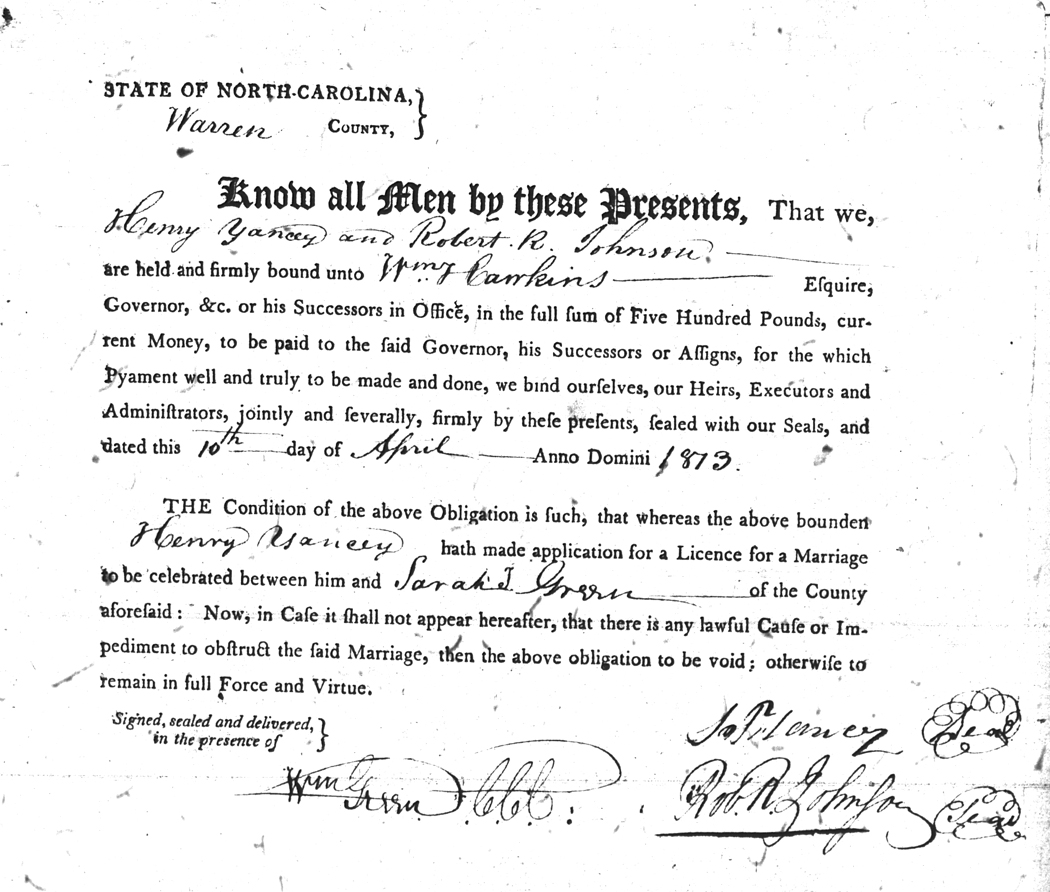 STATE OF NORTH-CAROLINA,
Warren COUNTY,
Know all Men by these Presents, That we,
Henry Yancey and Robert. R. Johnson.
are held and firmly bound unto Wm Hawkins Eſquire,
Governor, &c. or his Successors in Office, in the full ſum of Five Hundred Pounds, cur-
rent Money, to be paid to the ſaid Governor, his Successors or Aſſigns, for the which
Pyament well and truly to be made and done, we bind ourſelves, our Heirs, Executors and
Adminiſtrators, jointly and ſeverally, firmly by theſe preſents, ſealed with our Seals, and
dated this 10th day of April Anno Domini 1813.
THE Condition of the above Obligation is ſuch, that whereas the above bounden
Henry Yancey hath made application for a Licence for a Marriage
to be celebrated between him and Sarah J. Green of the County
aforeſaid: Now, in Caſe it ſhall not appear hereafter, that there is any lawful Cauſe or Im-
pediment to obſtruct the ſaid Marriage, then the above obligation to be void; otherwiſe to
remain in full Force and Virtue.
Signed, sealed and delivered,
in the presence of
Yancey Seal
Wm Green C.C.C.: Rob. R. Johnſon Seal